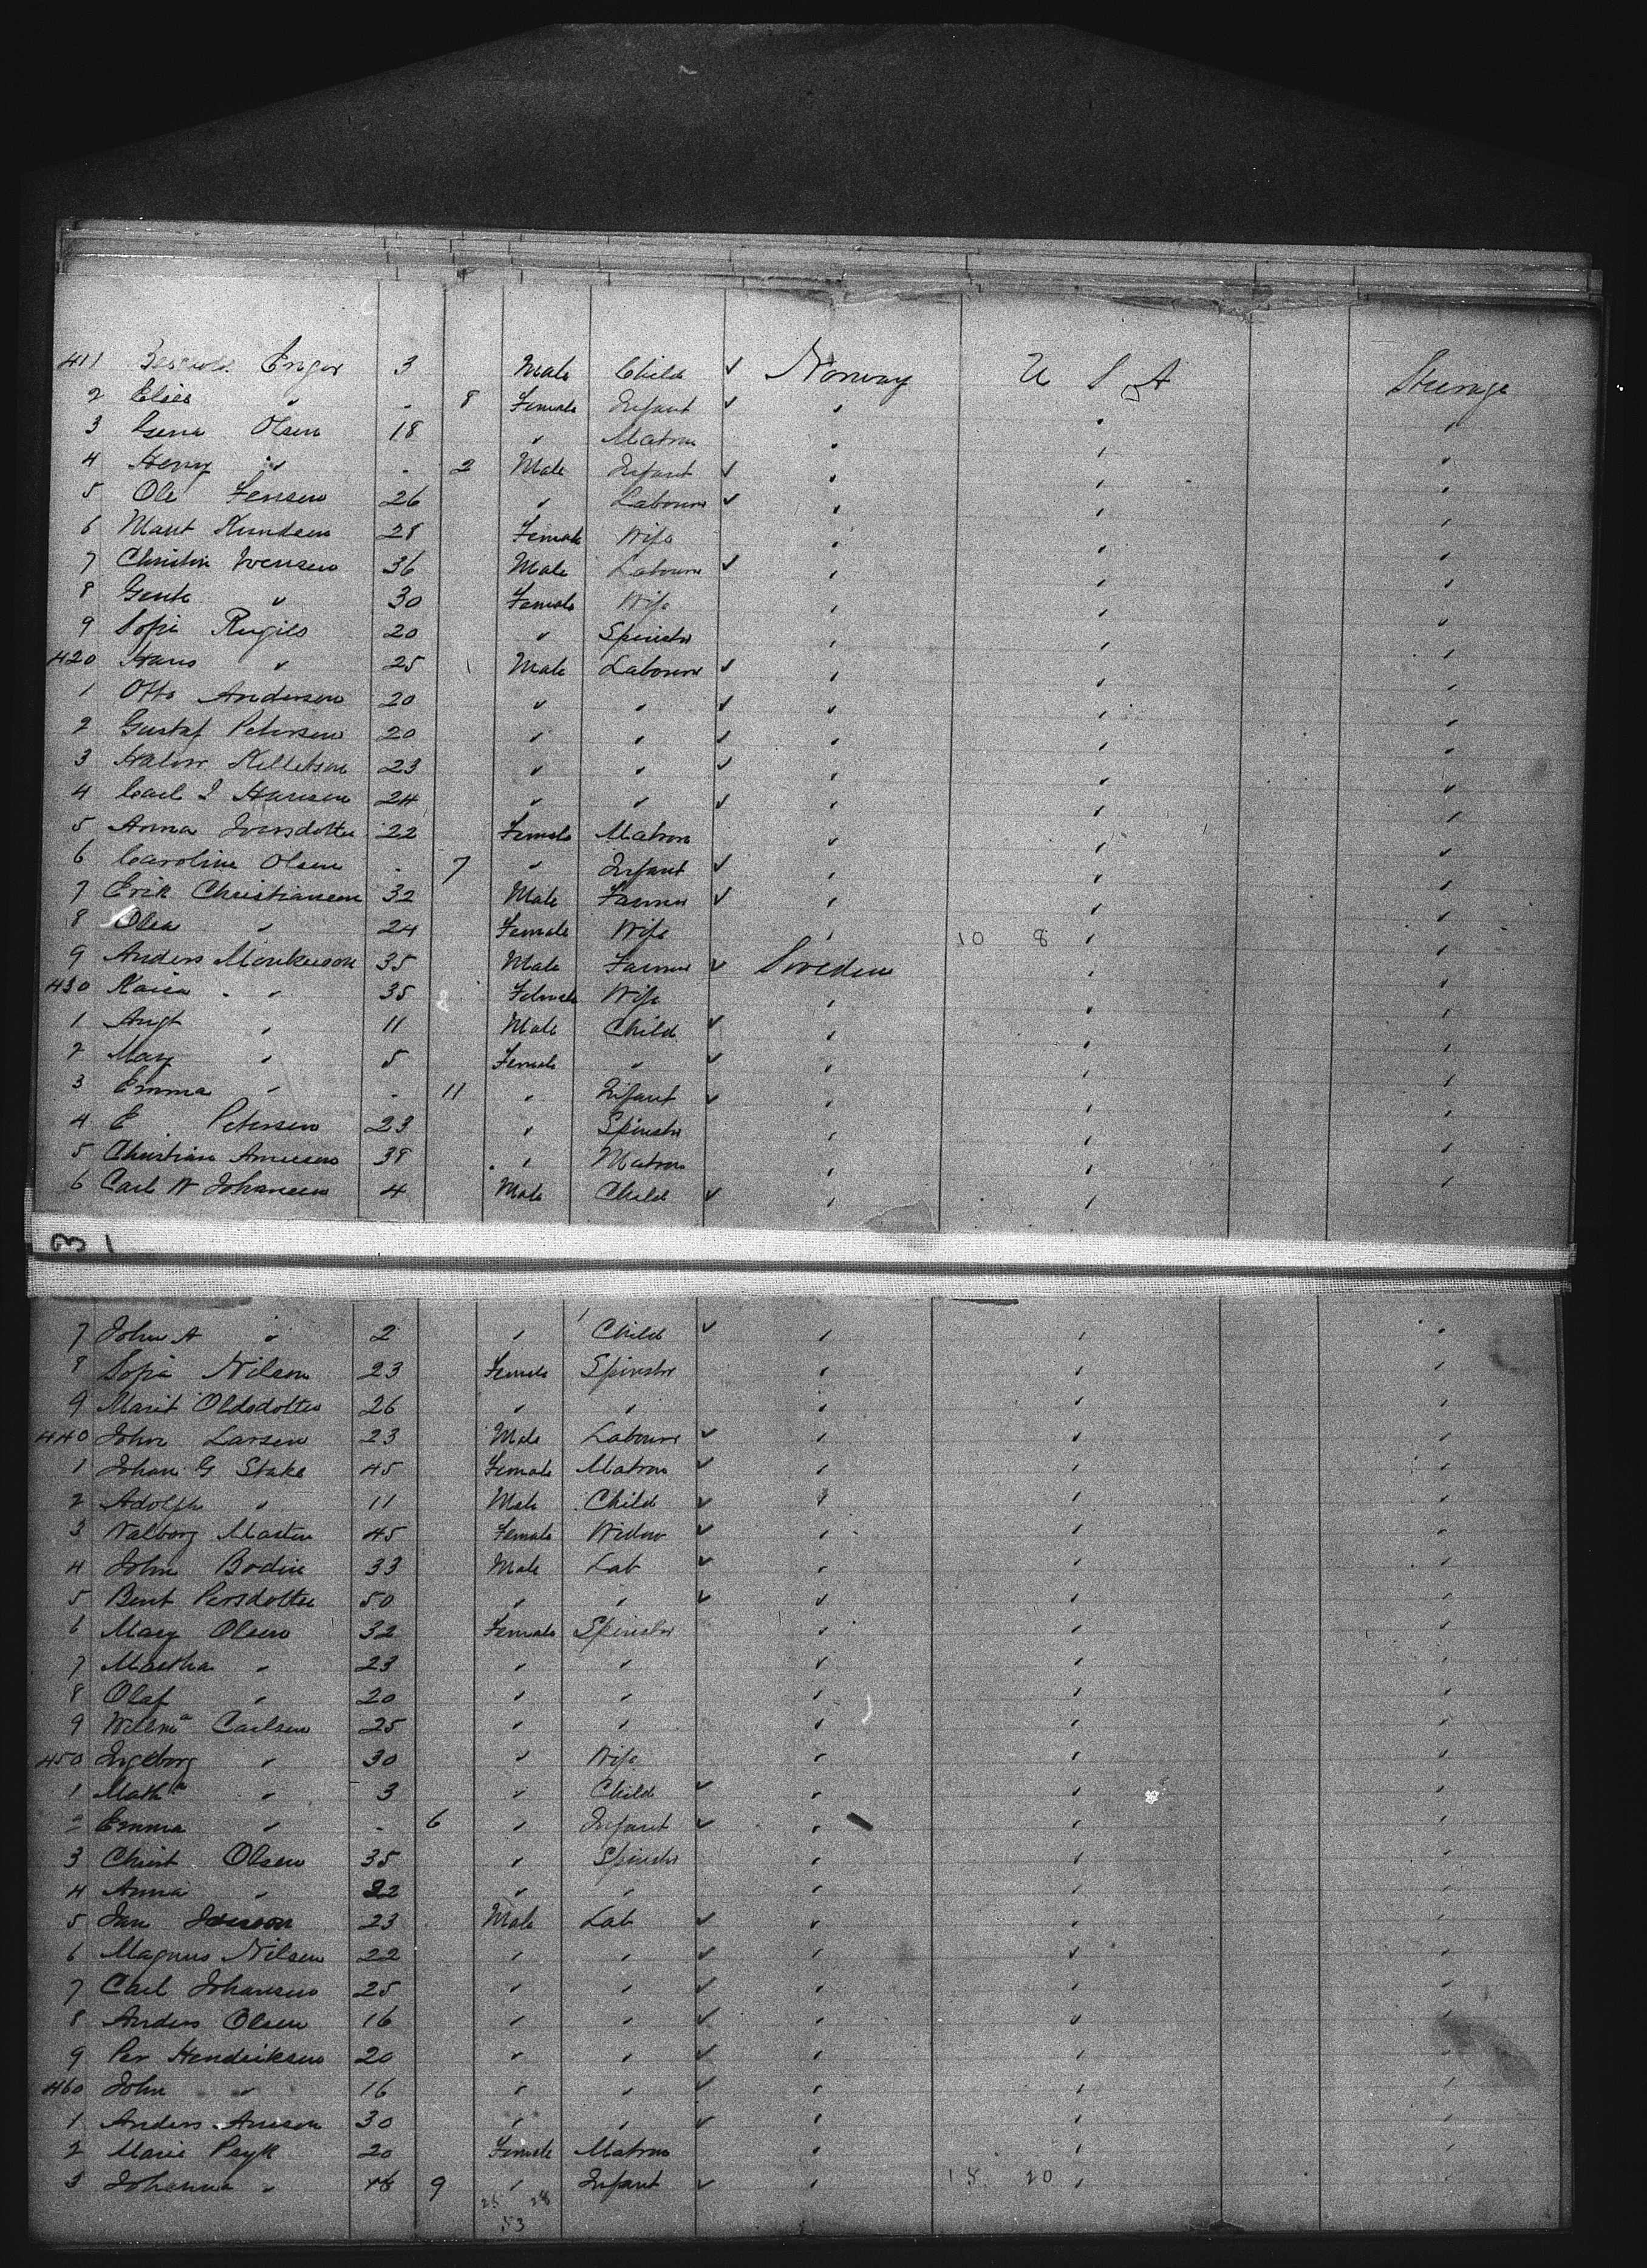 411 Engor 3 Male Child ✓ Norway U S A Steerage
2 Elise " . 8 Female Infant ✓ " " "
3 Gena Olsen 18 " Matron " " "
4 Henry " . 2 Male Infant ✓ " " "
5 Ole Jensen 26 " Labourer ✓ " " "
6 Marit Knudsen 28 Female Wife " " "
7 Christin Ivensen 36 Male Labourer ✓ " " "
8 " 30 Female Wife " " "
9 Sofie 20 " Spinster " " "
420 Hans " 25 Male Labourer ✓ " " "
1 Otto Andersen 20 " " ✓ " " "
2 Gustaf Petersen 20 " " ✓ " " "
3 Halvor Kelletsen 23 " " ✓ " " "
4 Carl I Hansen 24 " " ✓ " " "
5 Anna Iversdotter 22 Female Matron " " "
6 Caroline Olsen . 7 " Infant ✓ " " "
7 Erik Christiansen 32 Male Farmer ✓ " " "
8 Olea " 24 Female Wife " 10 8 " "
9 Anders Monkerson 35 Male Farmer ✓ Sweden " "
430 Kaisa " 35 Female Wife " " "
1 Augt " 11 Male Child ✓ " " "
2 Mary " 5 Female " ✓ " " "
3 Emma " . 11 " Infant ✓ " " "
4 E Petersen 23 " Spinster " " "
5 Christian 38 " Matron " " "
6 Carl W Johansen 4 Male Child ✓ " " "
31
7 John A " 2 " Child ✓ " " "
8 Sofia Nilsen 23 Female Spinster " " "
9 Marit Olddotter 26 " " " " "
440 John Larsen 23 Male Labourer ✓ " " "
1 Johan G Stake 45 Female Matron ✓ " " "
2 Adolph " 11 Male Child ✓ " " "
3 Valborg Martin 45 Female Widow ✓ " " "
4 John Bodin 33 Male Lab ✓ " " "
5 Bent Persdotter 50 " " ✓ " " "
6 Mary Olsen 32 Female Spinster " " "
7 Martha " 23 " " " " "
8 Olaf " 20 " " " " "
9 Wilma Carlsen 25 " " " " "
450 Ingeborg " 30 " Wife " " "
1 Matha " 3 " Child ✓ " " "
2 Emma " . 6 " Infant ✓ " " "
3 Christ Olsen 35 " Spinster " " "
4 Anna " 22 " " " " "
5 Jan 23 Male Lab ✓ " " "
6 Magnus Nilsen 22 " " ✓ " " "
7 Carl Johansen 25 " " ✓ " " "
8 Anders Olsen 16 " " ✓ " " "
9 Per Hendriksen 20 " " ✓ " " "
460 John " 16 " " ✓ " " "
1 Anders 30 " " ✓ " " "
2 Marie Psyk 20 Female Matron " " "
3 Johanna " 9 " Infant ✓ " 15 20 " "
25 28
53